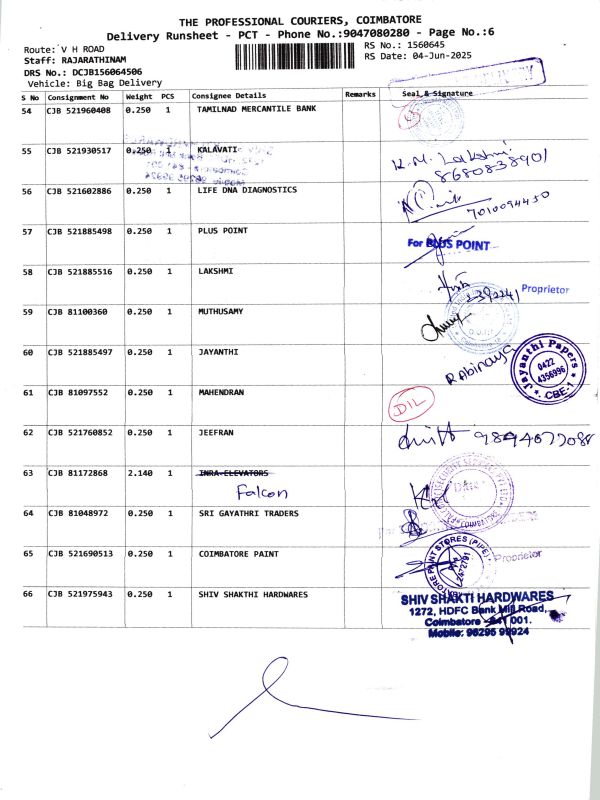 THE PROFESSIONAL COURIERS, COIMBATORE
Delivery Runsheet - PCT - Phone No.:9047080280 - Page No.:6
Route: V H ROAD
RS No.: 1560645
Staff: RAJARATHINAM
RS Date: 04-Jun-2025
DRS No.: DCJB156064506
Vehicle: Big Bag Delivery
S No Consignment No Weight PCS Consignee Details Remarks Seal & Signature
54 CJB 521960408 0.250 1 TAMILNAD MERCANTILE BANK
55 CJB 521930517 0.250 1 KALAVATI
K.M. Lakshmi
8680838901
56 CJB 521602886 0.250 1 LIFE DNA DIAGNOSTICS
7010094450
57 CJB 521885498 0.250 1 PLUS POINT
For PLUS POINT
58 CJB 521885516 0.250 1 LAKSHMI
Proprietor
59 CJB 81100360 0.250 1 MUTHUSAMY
60 CJB 521885497 0.250 1 JAYANTHI
R Abinaya
Jayanthi Papers
0422
4356996
CBE-1
61 CJB 81097552 0.250 1 MAHENDRAN
DIL
62 CJB 521760852 0.250 1 JEEFRAN
63 CJB 81172868 2.140 1 INRA ELEVATORS
Falcon
64 CJB 81048972 0.250 1 SRI GAYATHRI TRADERS
65 CJB 521690513 0.250 1 COIMBATORE PAINT
Proprietor
66 CJB 521975943 0.250 1 SHIV SHAKTHI HARDWARES
SHIV SHAKTI HARDWARES
1272, HDFC Bank Mill Road,
Coimbatore - 641 001.
Mobile: 96295 99924